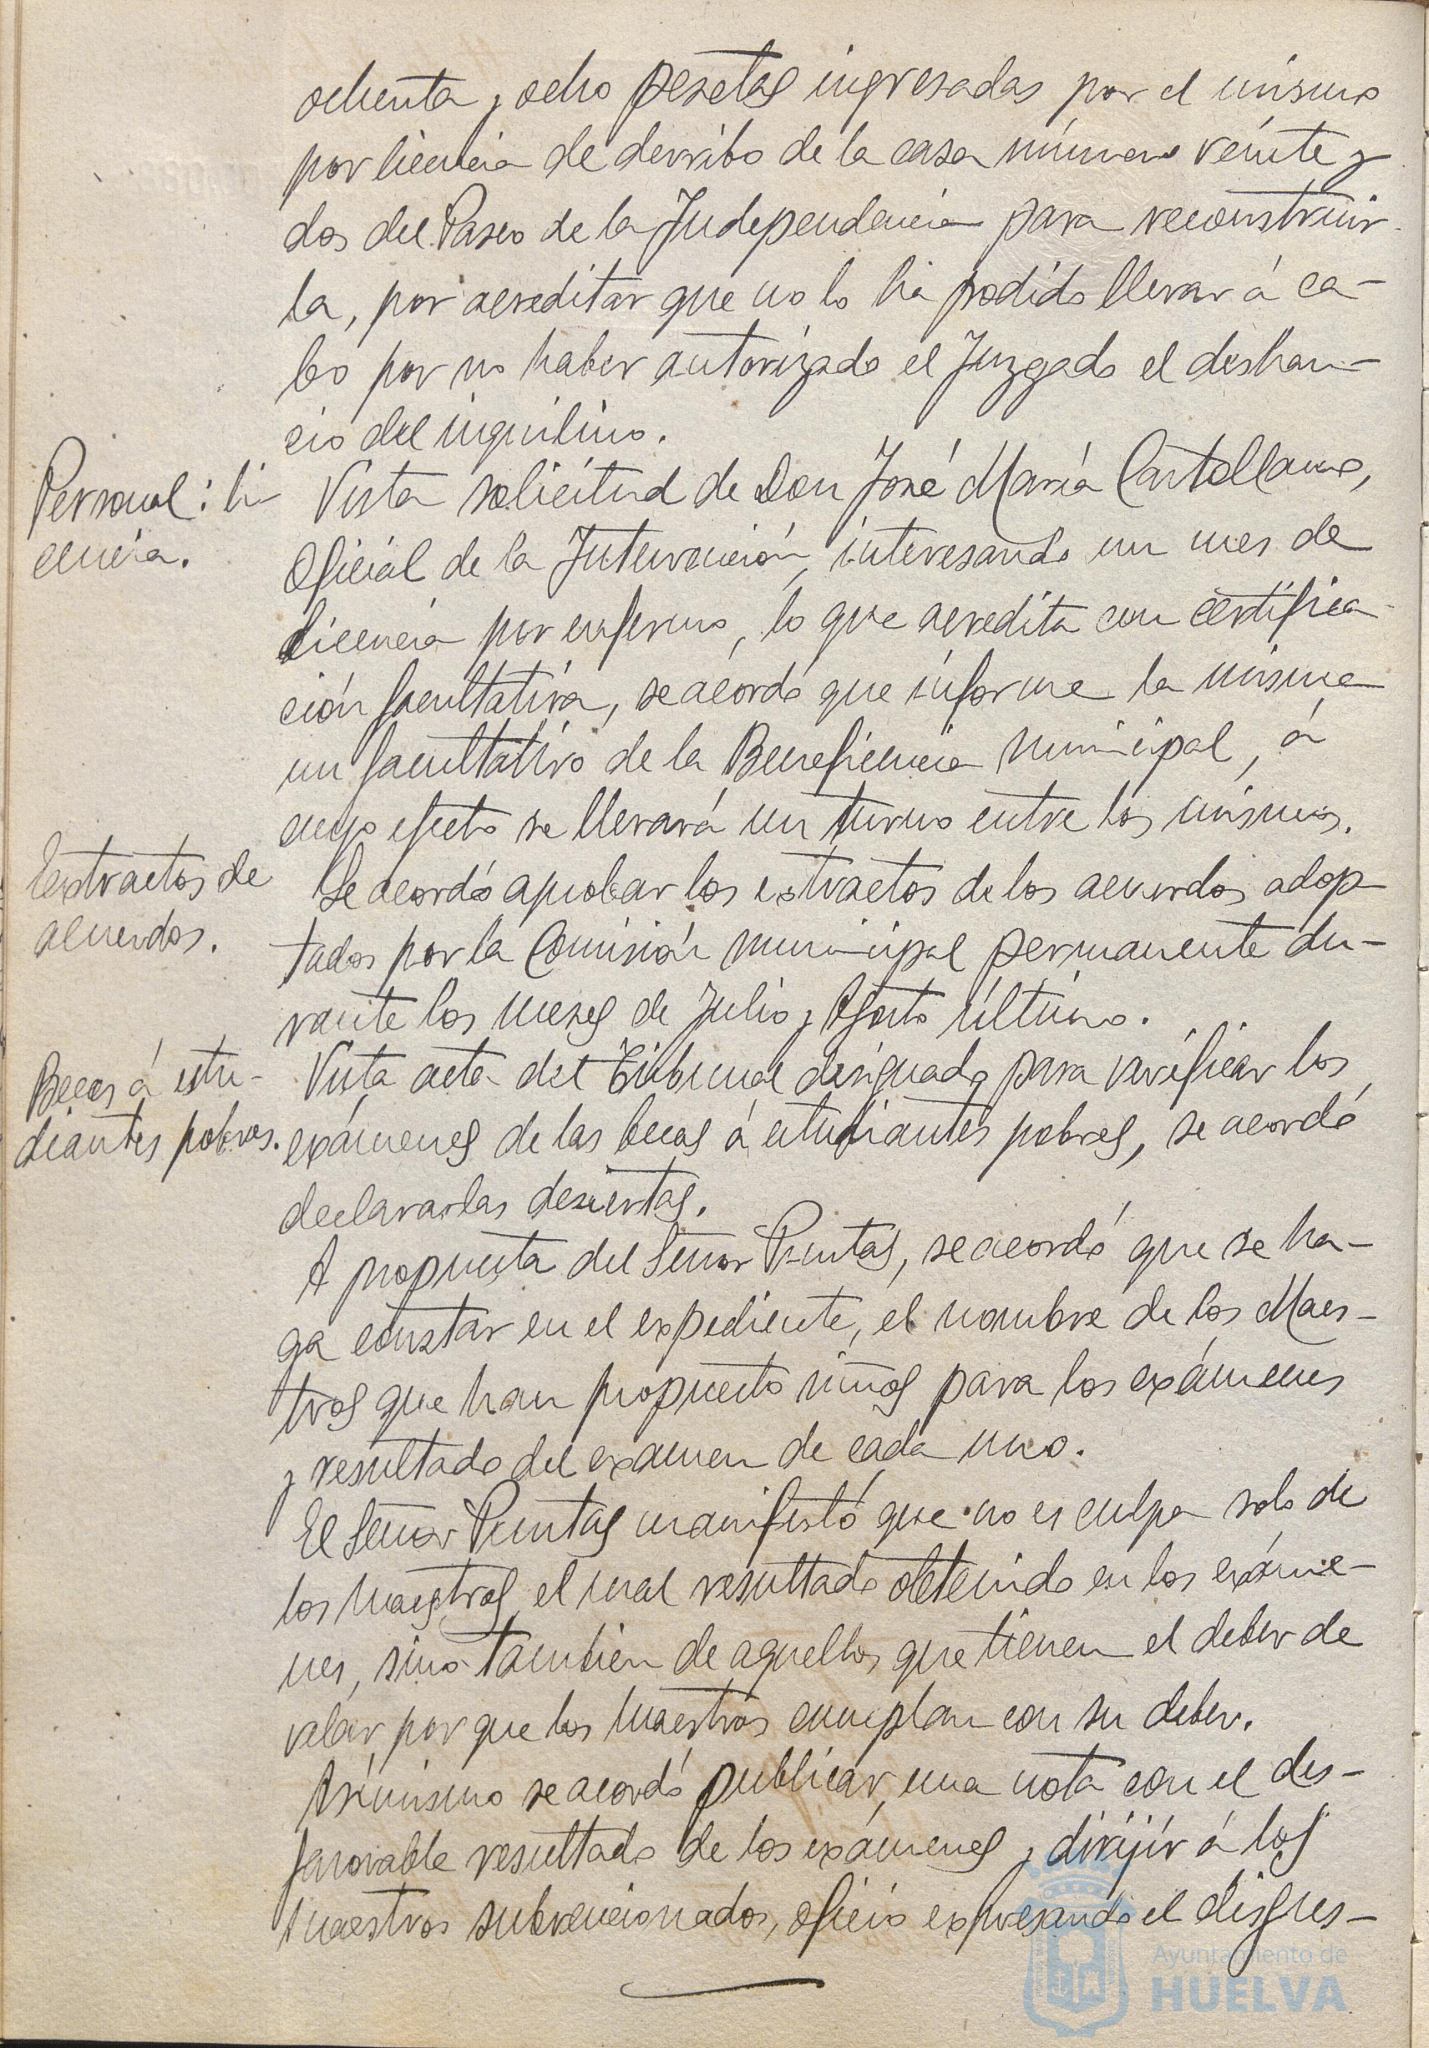 ochenta y ocho pesetas ingresadas por el mismo
por licencia de derribo de la casa número veinte y
dos del Paseo de la Independencia para reconstruir
la, por acreditar que no lo ha podido llevar á ca-
bo por no haber autorizado el Juzgado el deshau-
cio del inquilino.
Personal: li
cencia.
Vista solicitud de Don José María Castellano,
Oficial de la Intervención, interesando un mes de
licencia por enfermo, lo que acredita con certifica-
ción facultativa, se acordó que informe la misma
un facultativo de la Beneficencia municipal, á
cuyo efecto se llevará un turno entre los mismos.
Extractos de
acuerdos.
Se acordó aprobar los extractos de los acuerdos adop-
tados por la Comisión municipal permanente du-
rante los meses de Julio y Agosto último.
Becas á estu-
diantes pobres.
Vista acta del Tribunal designado para verificar los
exámenes de las becas á estudiantes pobres, se acordó
declararlas desiertas.
A propuesta del Señor Puntas, se acordó que se ha-
ga constar en el expediente, el nombre de los Maes-
tros que han propuesto niños para los exámenes
y resultado del examen de cada uno.
El Señor Puntas manifestó que no es culpa solo de
los maestros el mal resultado obtenido en los exáme-
nes, sino también de aquellos que tienen el deber de
velar por que los maestros cumplan con su deber.
Asímismo se acordó publicar una nota con el des-
favorable resultado de los exámenes y dirijír á los
maestros subvencionados, oficio expresando el disgus-
Ayuntamiento de
HUELVA